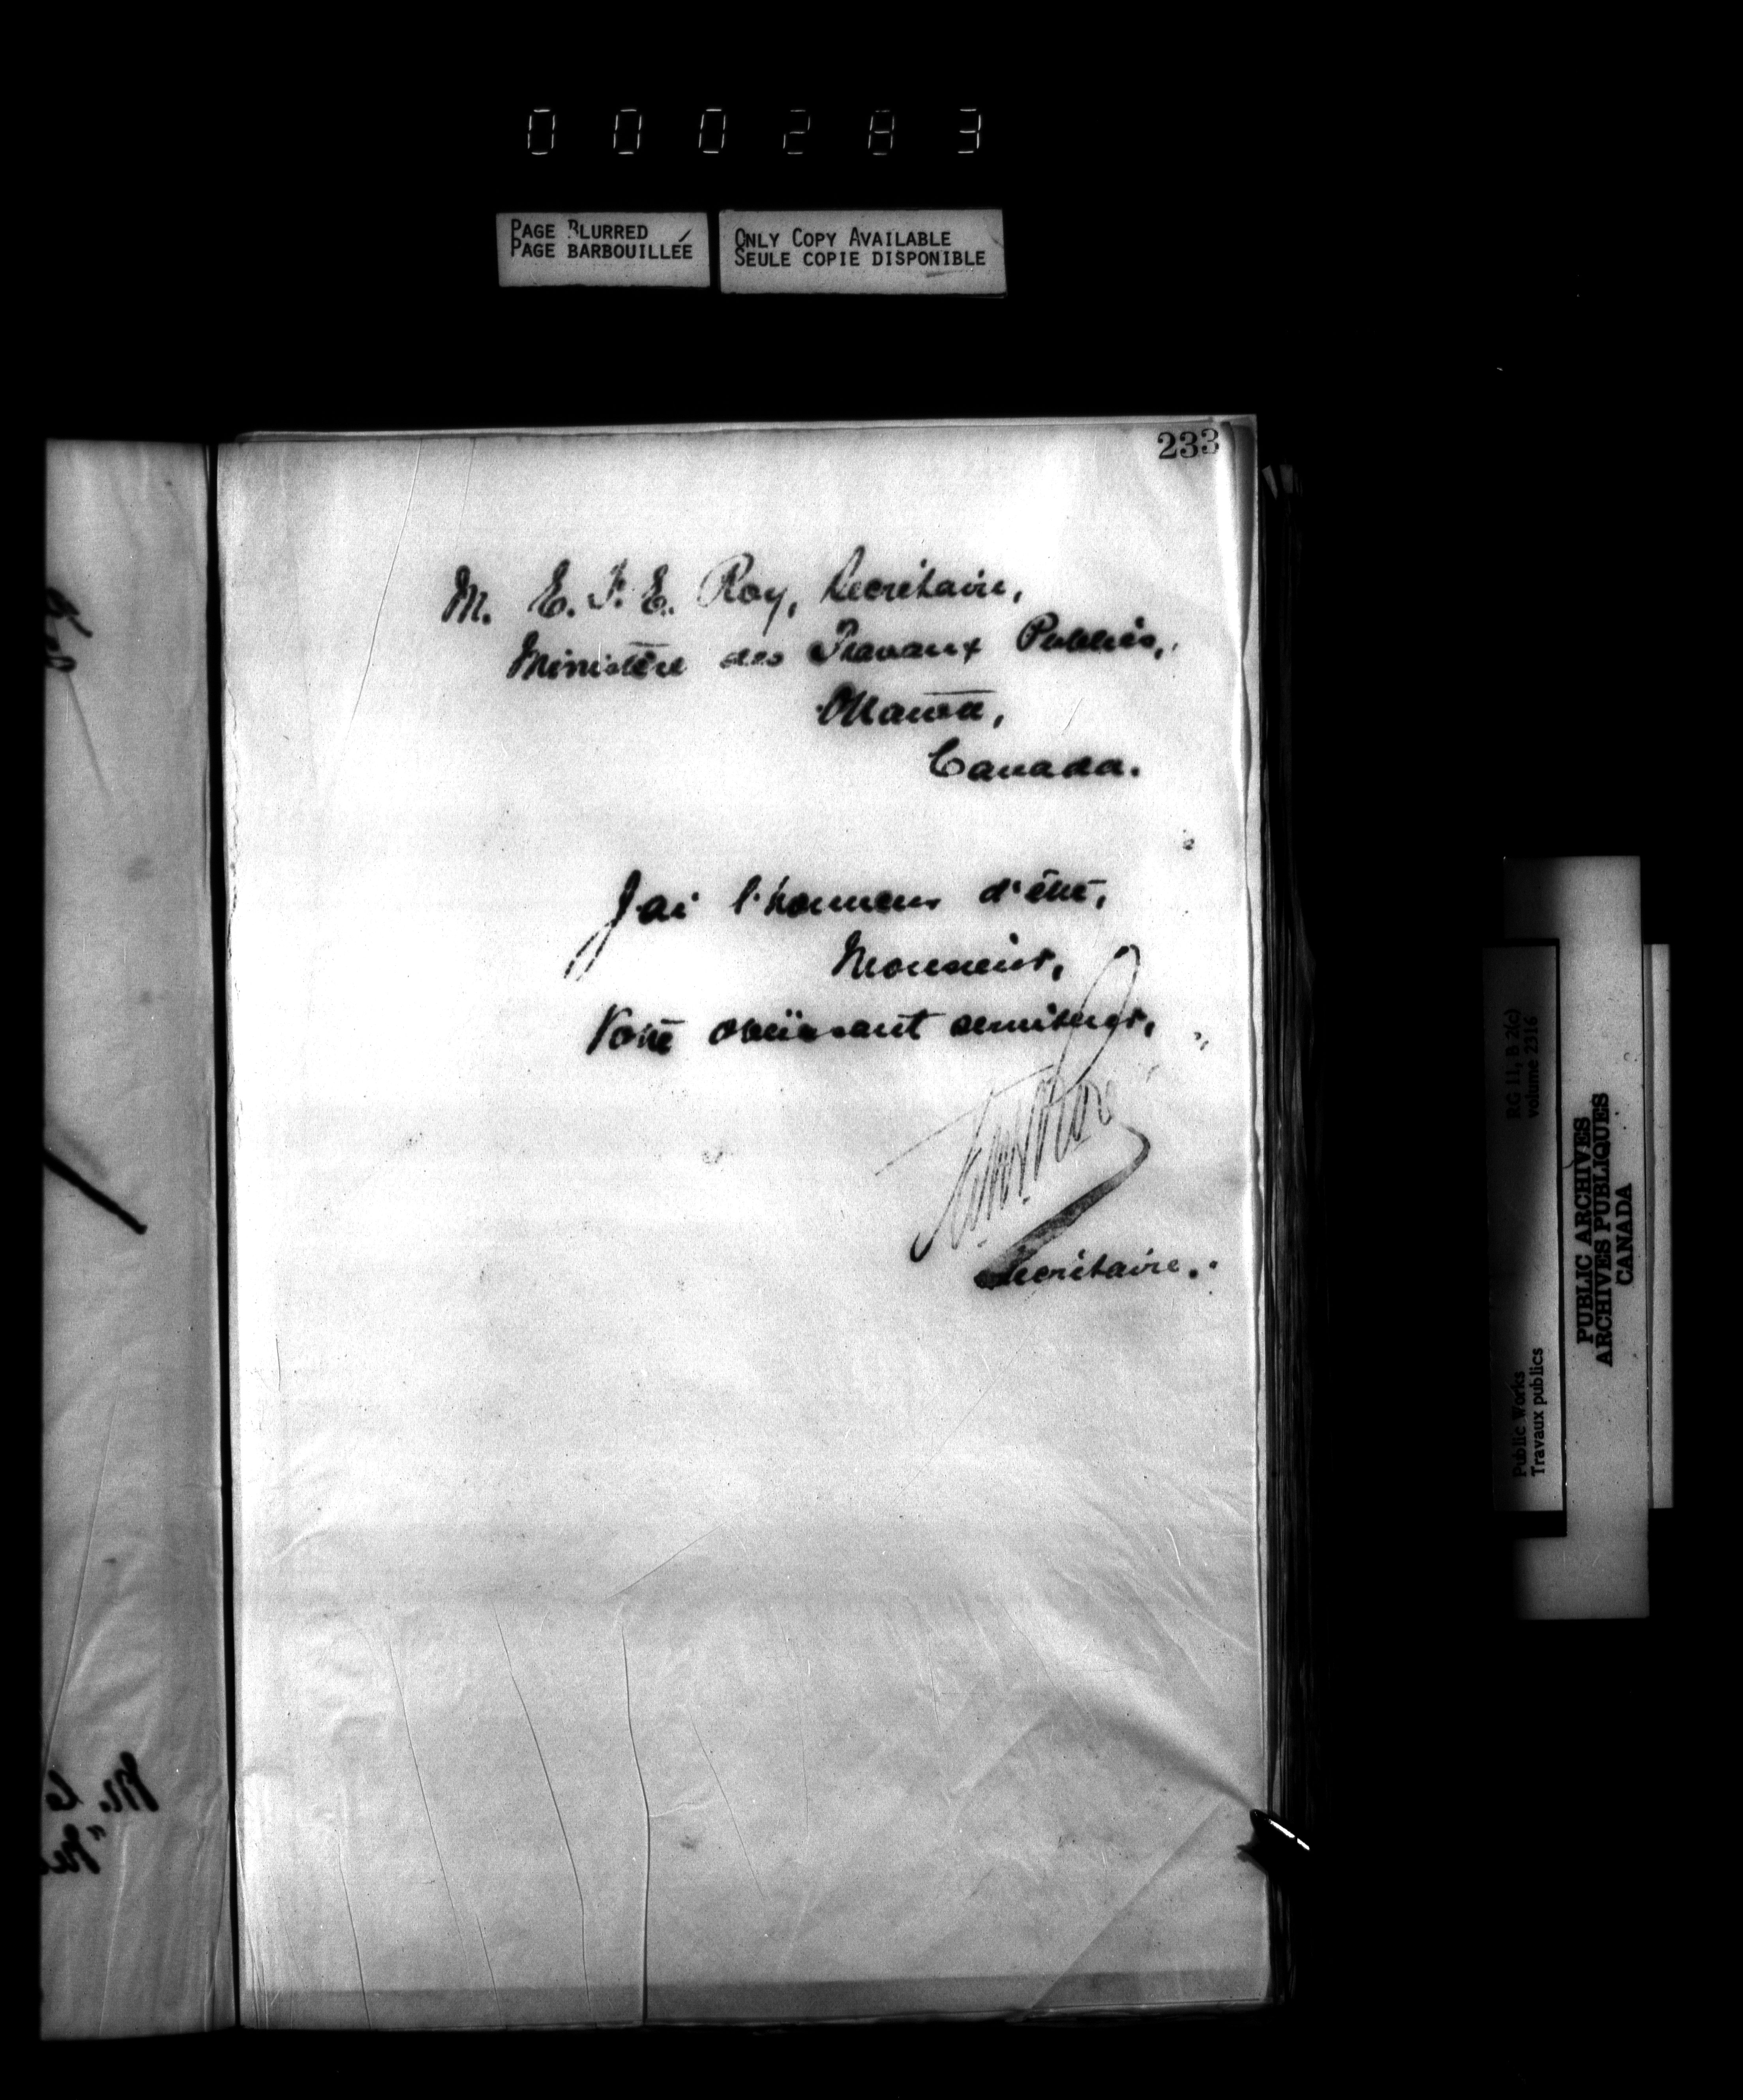 000283
PAGE BLURRED
PAGE BARBOUILLÉE
ONLY COPY AVAILABLE
SEULE COPIE DISPONIBLE
233
M. E. F. E. Roy, Secrétaire,
Ministère des Travaux Publics,
Ottawa,
Canada.
J'ai l'honneur d'être,
Monsieur,
Votre obéissant serviteur,
Secrétaire.
RG 11, B 2(c)
volume 2316
Public Works
Travaux publics
PUBLIC ARCHIVES
ARCHIVES PUBLIQUES
CANADA